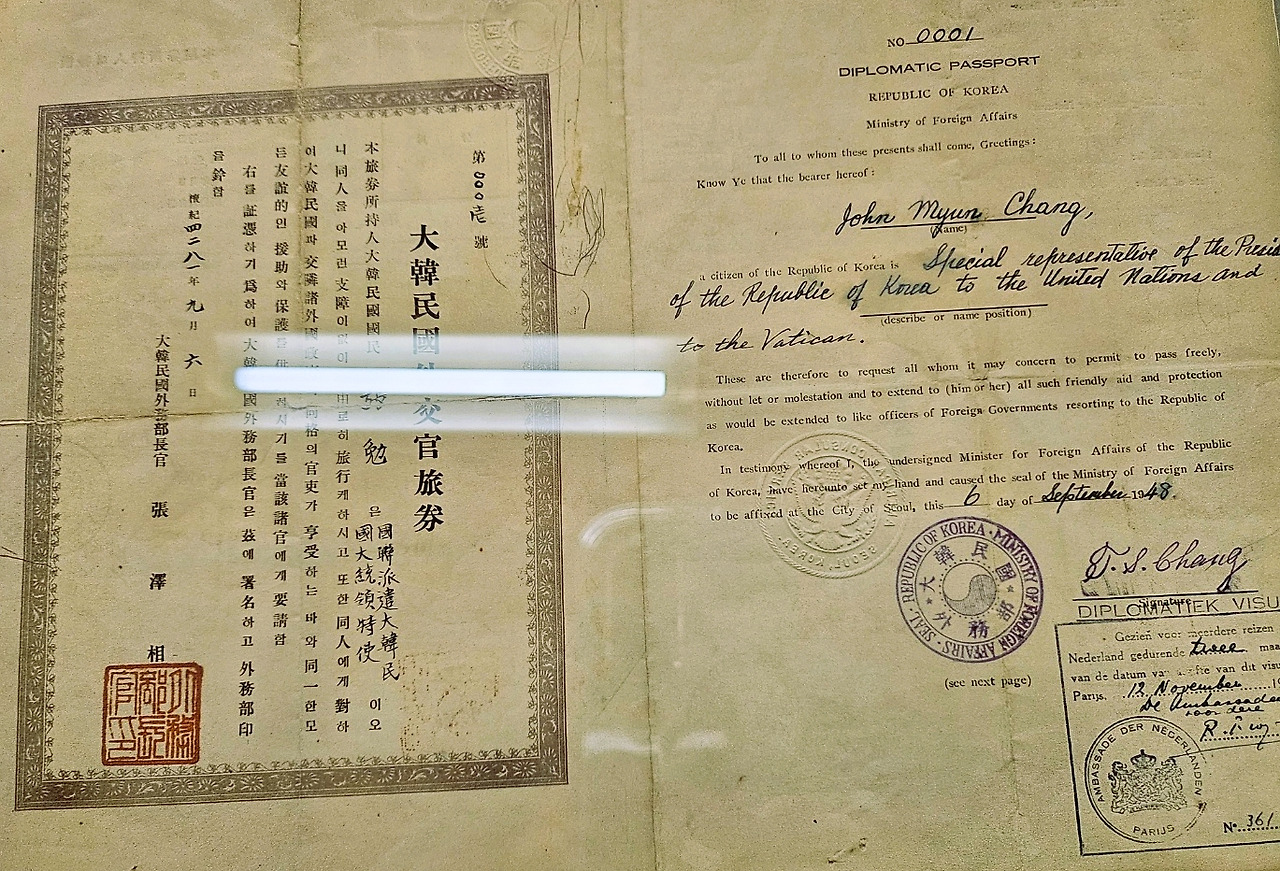 第000壱號
大韓民國外交官旅券
本旅券所持人大韓民國國民 勉 은 國聯派遣大韓民國大統領特使 이오
니 同人을 아모런 支障이 없이 由로히 旅行케하시고 또한 同人에게 對하
여 大韓民國과 交隣諸外國政 同格의 官吏가 享受하는 바와 同一한 모
든 友誼的인 援助와 保護를 하시기를 當該諸官에게 要請함
右를 証憑하기 爲하여 大韓民國外務部長官은 玆에 署名하고 外務部印
을 鈐함
檀紀四二八一年九月六日
大韓民國外務部長官 張澤相
外務部長官印
NO 0001
DIPLOMATIC PASSPORT
REPUBLIC OF KOREA
Ministry of Foreign Affairs
To all to whom these presents shall come, Greetings:
Know Ye that the bearer hereof:
John Myun Chang,
(Name)
a citizen of the Republic of Korea is Special representative of the Presi
of the Republic of Korea to the United Nations and
(describe or name position)
to the Vatican.
These are therefore to request all whom it may concern to permit to pass freely,
without let or molestation and to extend to (him or her) all such friendly aid and protection
as would be extended to like officers of Foreign Governments resorting to the Republic of
Korea.
In testimony whereof I, the undersigned Minister for Foreign Affairs of the Republic
of Korea, have hereunto set my hand and caused the seal of the Ministry of Foreign Affairs
to be affixed at the City of Seoul, this 6 day of September 1948.
T. S. Chang
Signature
REPUBLIC OF KOREA · MINISTRY OF FOREIGN AFFAIRS · SEAL
大韓民國外務部
(see next page)
DIPLOMATIEK VISU
Gezien voor meerdere reizen
Nederland gedurende twee maa
van de datum van afgifte van dit visu
Parijs, 12 November 19
De Ambassade
voor deze
AMBASSADE DER NEDERLANDEN
PARIJS
Nº 361